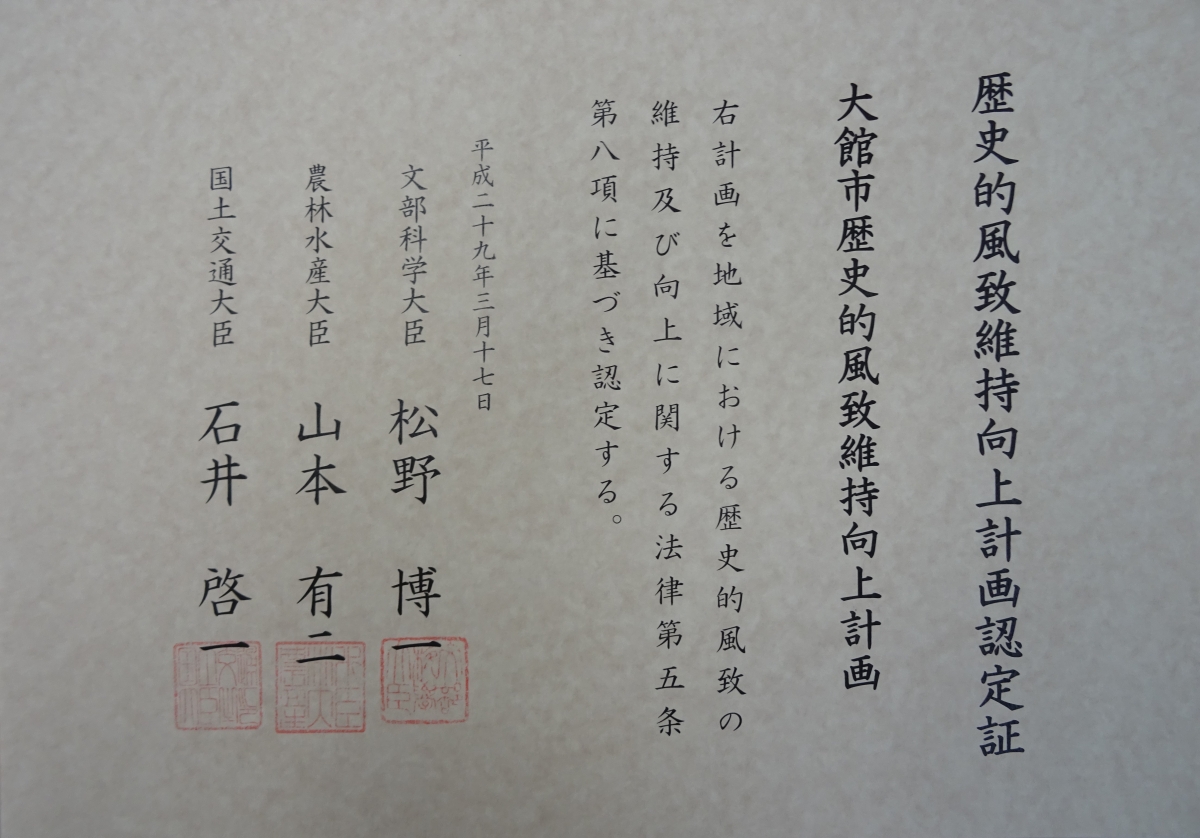 歴史的風致維持向上計画認定証
大館市歴史的風致維持向上計画
右計画を地域における歴史的風致の
維持及び向上に関する法律第五条
第八項に基づき認定する。
平成二十九年三月十七日
文部科学大臣 松野 博一
農林水産大臣 山本 有二
国土交通大臣 石井 啓一